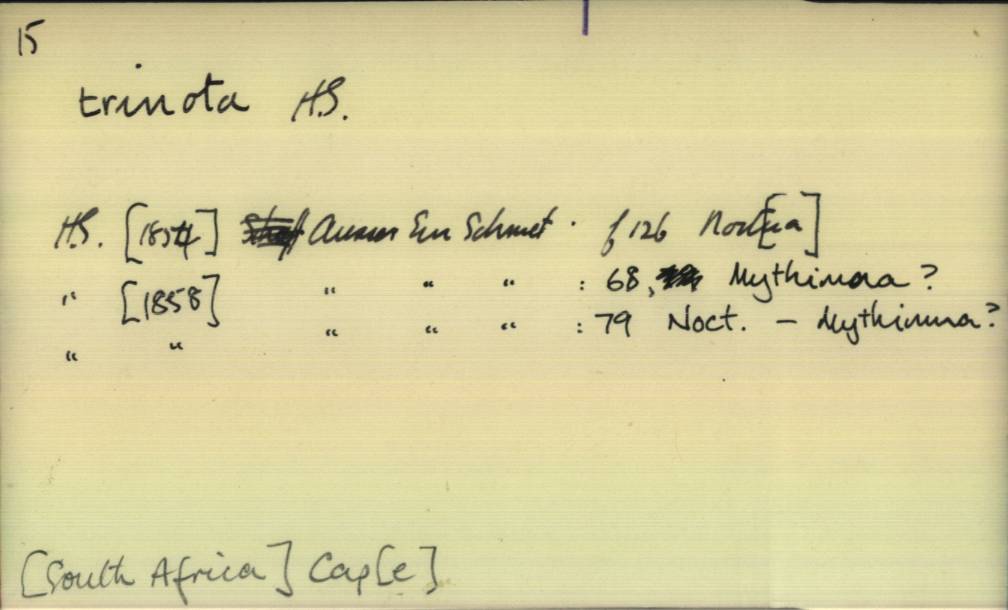 15
trinota H.S.
H.S. [1854] Ausser Eur Schmet. f 126 Noct[ua]
" [1858] " " " : 68, Mythimna?
" " " " " : 79 Noct. - Mythimna?
[South Africa] Cap[e]